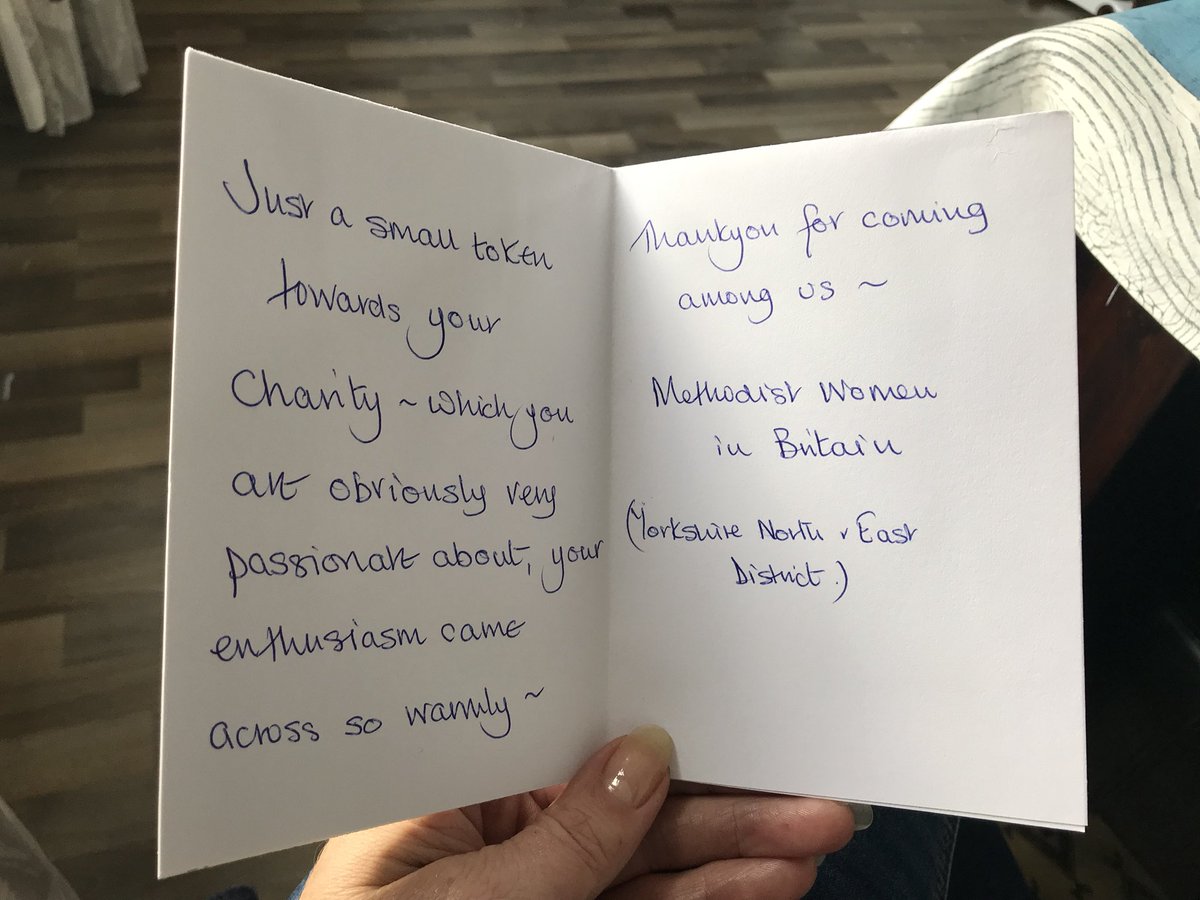 Just a small token
towards your
Charity ~ which you
are obviously very
passionate about, your
enthusiasm came
across so warmly ~
Thankyou for coming
among us ~
Methodist Women
in Britain
(Yorkshire North & East
District.)